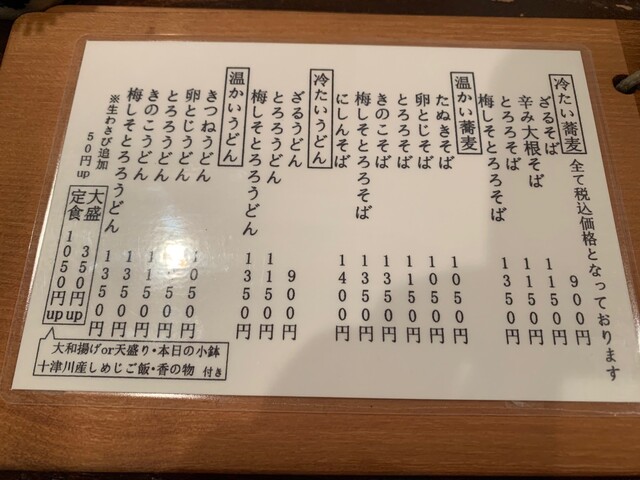 冷たい蕎麦
全て税込価格となっております
ざるそば 900円
辛み大根そば 1150円
とろろそば 1150円
梅しそとろろそば 1350円
温かい蕎麦
たぬきそば 1050円
卵とじそば 1050円
とろろそば 1150円
きのこそば 1350円
梅しそとろろそば 1350円
にしんそば 1400円
冷たいうどん
ざるうどん 900円
とろろうどん 1150円
梅しそとろろうどん 1350円
温かいうどん
きつねうどん 1050円
卵とじうどん
とろろうどん 1150円
きのこうどん 1350円
梅しそとろろうどん 1350円
※生わさび追加 50円up
大盛 350円up
定食 1050円up
大和揚げor天盛り・本日の小鉢
十津川産しめじご飯・香の物 付き